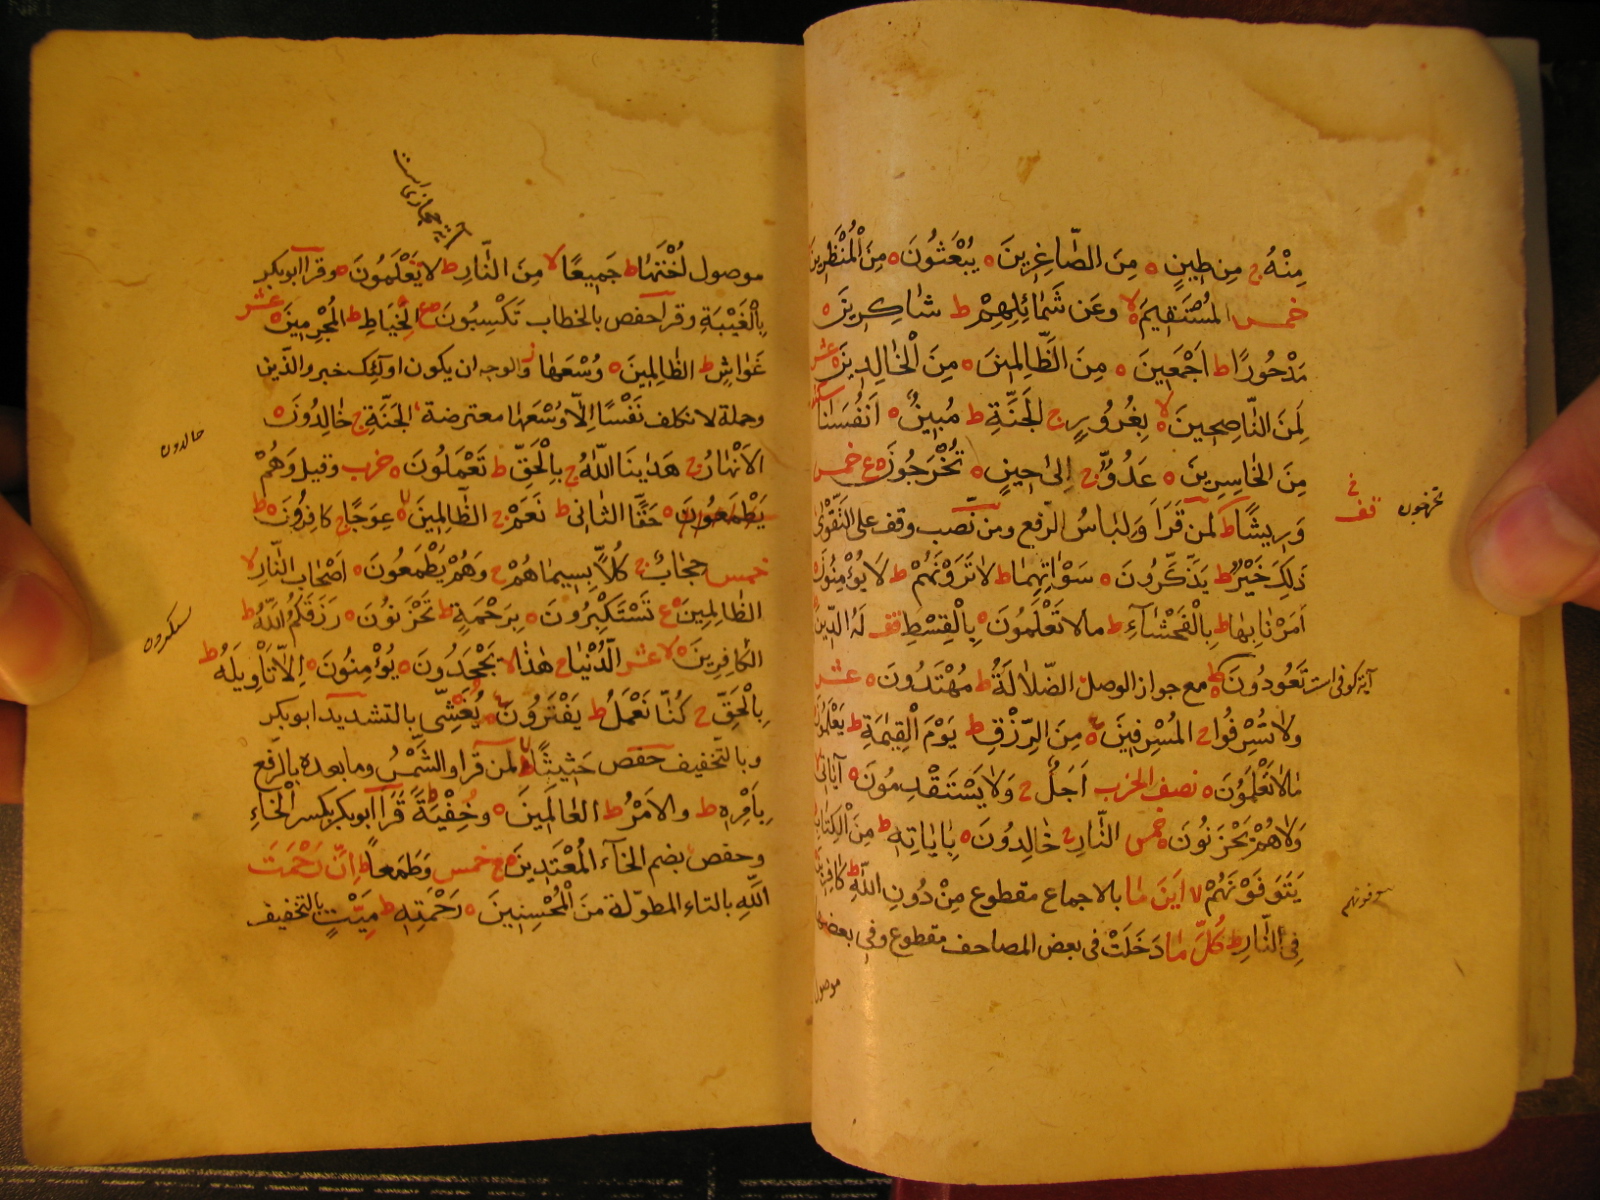 مِنْهُ ج مِن طِينٍ ه مِنَ الصَّاغِرِينَ ه يُبْعَثُونَ ه مِنَ الْمُنْظَرِينَ
خمس المُسْتَقِيمَ لا وعَن شَمَائِلِهِمْ ط شاكِرِينَ ه
مَدْحُورًا ط اَجْمَعِينَ ه مِنَ الظَّالِمِينَ ه مِنَ الْخَالِدِينَ ه عشر
لَمِنَ النَّاصِحِينَ لا بِغُرُورٍ ج الجَنَّةِ ط مُبِينٌ ه اَنفُسَنَا سكته
مِنَ الخَاسِرِينَ ه عَدُوٌّ ج اِلىٰ حِينٍ ه تُخْرَجُونَ ه ع خمس
وَرِيشًا ط لمن قَرَأَ وَلِبَاسُ الرّفع ومن نَصب وقف على التَّقْوٰى
ذٰلِكَ خَيْرٌ ط يَذَّكَّرُونَ ه سَوْاٰتِهِمَا ط لاَ تَرَوْنَهُمْ ط لا يُؤْمِنُونَ ه
اَمَرَنَا بِهَا ط بِالْفَحْشَاءِ ط ما لا تَعْلَمُونَ ه بِالْقِسْطِ قف لَهُ الدِّينَ
تَعُودُونَ ط مع جواز الوصل الضَّلاَلَةُ ط مُهْتَدُونَ ه عشر
ولا تُسْرِفُوا ج المُسْرِفِينَ ه ع مِنَ الرِّزْقِ ط يَوْمَ الْقِيٰمَةِ ط يَعْلَمُونَ
مَا لاَ تَعْلَمُونَ ه نصف الحزب اَجَلٌ ج وَلاَ يَسْتَقْدِمُونَ ه اٰيَاتِى لا
وَلا هُمْ يَحْزَنُونَ ه خمس النَّارِ ج خَالِدُونَ ه بِاٰيَاتِهِ ط مِنَ الْكِتَابِ ط
يَتَوَفَّوْنَهُمْ لا اَيْنَ مَا بالاجماع مقطوع مِنْ دُونِ اللّٰهِ ط كَافِرِينَ
فِى النَّارِ ط كُلَّ مَا دَخَلَتْ فى بعض المصاحف مقطوع وفى بعضها
موصول
تخرجون
قف
آية كوفى است
يتوفونهم
موصول لُخْتَهَا ط جَمِيعًا لا مِنَ النَّارِ ط لا يَعْلَمُونَ ه وقرا ابوبكر
بِالْغَيْبَةِ وقرا حفص بالخطاب تَكْسِبُونَ ه ع الْخِيَاطِ ط المُجْرِمِينَ ه عشر
غَوَاشٍ ط الظَّالِمِينَ ه وُسْعَهَا ز والوجه ان يكون اولٓئك خبر والذّين
وجملة لا نكلف نَفْسًا اِلّا وُسْعَهَا معترضة الجَنَّةِ ج خَالِدُونَ ه
الاَنْهَارُ ج هَدٰينَا اللّٰهُ ج بِالْحَقِّ ط تَعْمَلُونَ ه حزب وقيل وَهُمْ
يَطْمَعُونَ ه حَقًّا الثانى ط نَعَمْ ج الظَّالِمِينَ لا عِوَجًا ج كَافِرُونَ ه ط
خمس حِجَابٌ ج كُلاًّ بِسِيمَاهُمْ ج وَهُمْ يَطْمَعُونَ ه اَصْحَابِ النَّارِ لا
الظالِمِينَ ه ع تَسْتَكْبِرُونَ ه بِرَحْمَةٍ ط تَحْزَنُونَ ه رَزَقَكُمُ اللّٰهُ ط
الكَافِرِينَ ه لا عشر الدُّنْيَا ج هٰذَا لا يَجْحَدُونَ ه يُؤْمِنُونَ ه اِلّا تَاْوِيلَهُ ط
بِالْحَقِّ ج كُنَّا نَعْمَلُ ط يَفْتَرُونَ ه ع يُغَشِّى بالتشديد ابوبكر
وبالتّخفيف حفص حَثِيثًا لا لمن قرا والشَّمْسُ وما بعده بالرّفع
بِاَمْرِهِ ط والاَمْرُ ط العَالَمِينَ ه وخِفْيَةً ط قَرَأَ ابوبكر بكسر الخاءِ
وحفص بضم الخآء المُعْتَدِينَ ه ج خمس وَطَمَعاً ط اِنَّ رَحْمَتَ
اللّٰهِ بالتاء المطوّلة مِنَ الْمُحْسِنِينَ ه رَحْمَتِهِ ط مَيِّتٍ بالتخفيف
خالدون